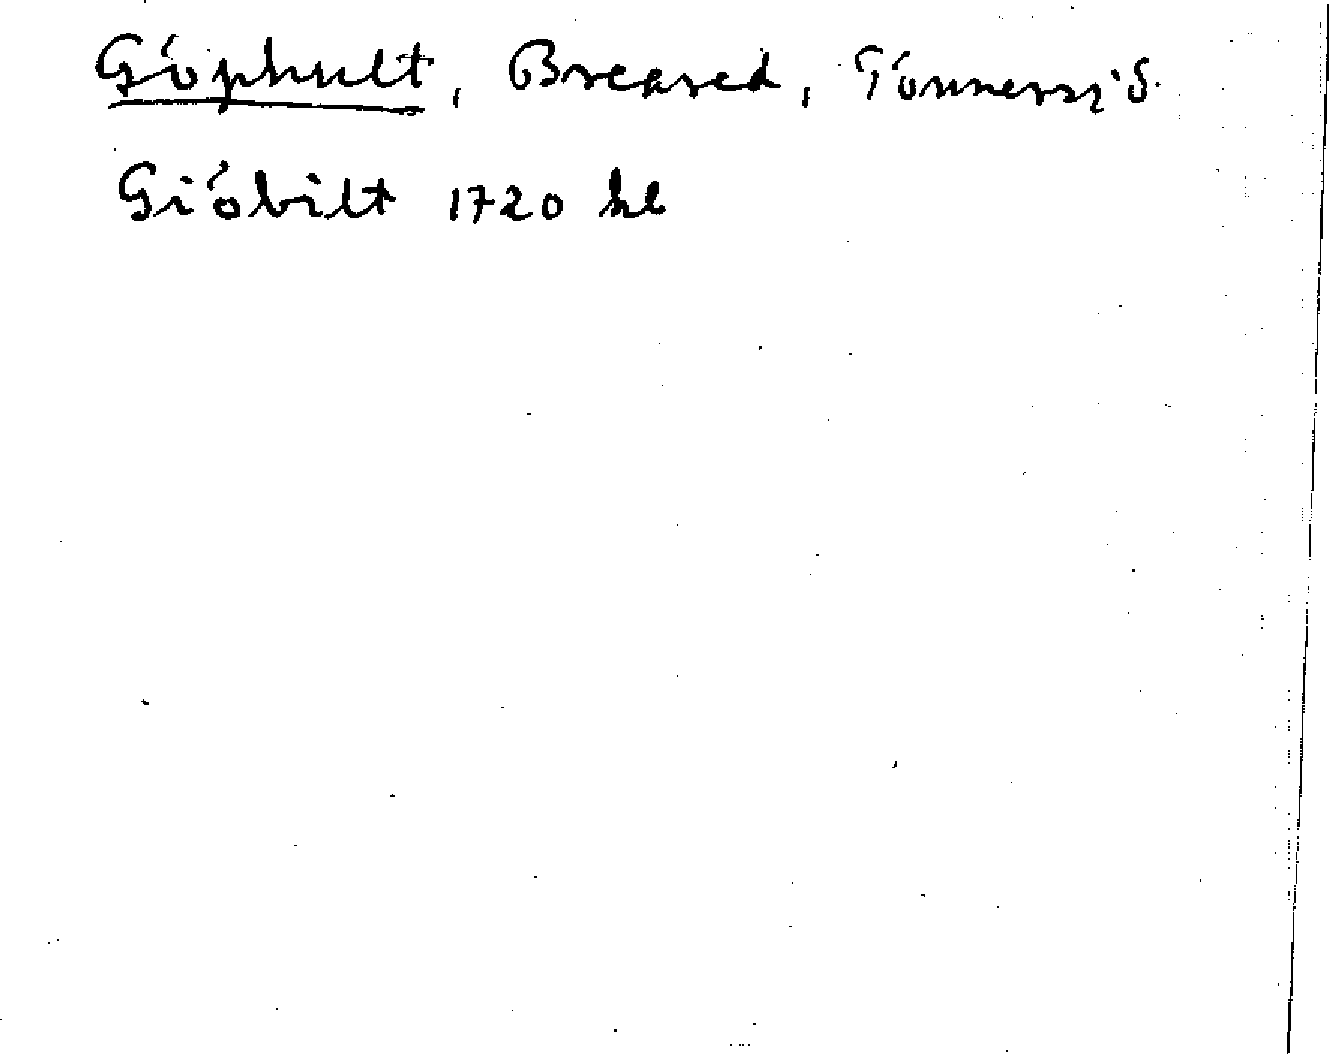 Göphult, Breared, Tönnersjö.
Giöbilt 1720 hl